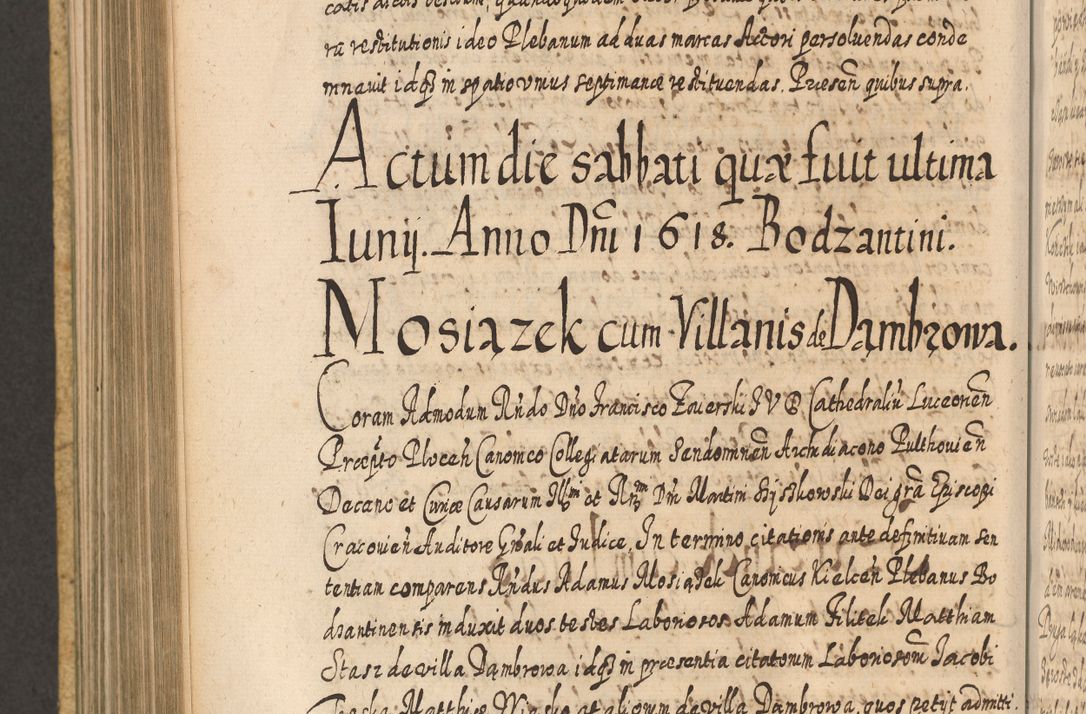 ra restitutionis ideo Plebanum ad duas marcas Actori persoluendas conde
mnauit idq3 in spatio vnius septimanæ restituendas. Præsen̄ quibus supra.
Actum die sabbati quæ fuit ultima
Iunij. Anno Dn̄i 1618. Bodzantini.
Mosiązek cum Villanis de Dąmbrowa.
Coram Admodum Rn̄do Dn̄o Francisco Zaierski I V D Cathedraliū Luceorien̄
Præpto Plocen̄ Canonico Collegiatarum Sendomirien̄ Archidiacono Pulthouien̄
Decano et Curiæ Causarum Illm̄i et Rm̄i Dn̄i Martini Szyszkowski Dei gr̄a Episcopi
Cracouien̄ Auditore Gn̄ali et Iudice, In termino citationis ante definitiuam sen
tentiam comparens Rn̄dus Adamus Mosiądek Canonicus Kielcen̄ Plebanus Bo
dzantinensis induxit duos testes Laboriosos Adamum Filitek Matthiam
Stasz de villa Dąmbrowa idq3 in præsentia citatorum Laboriosorm̄ Iacobi
Matthiæ de villa Dąmbrowa, quos petijt admitti.